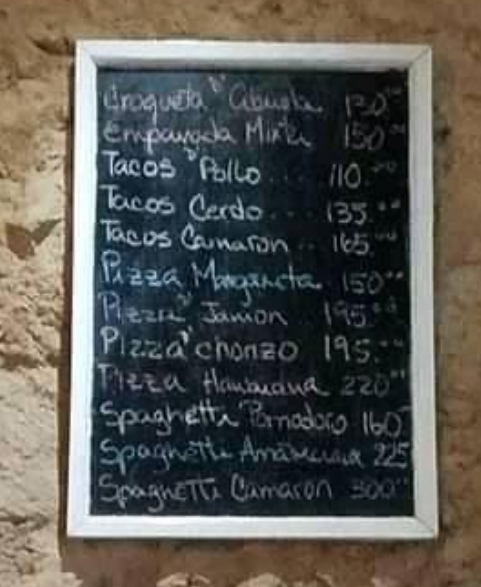 Croqueta D' abuela 130.00
Empanada Mixta 150.00
Tacos D' Pollo... 110.00
Tacos Cerdo... 135.00
Tacos Camaron.. 165.00
Pizza Margarita 150.00
Pizza D' Jamon 195.00
Pizza' chorizo 195.00
Pizza Hawaiana 220.00
Spaghetti Pomodoro 160
Spaghetti 225
Spaghetti Camaron 300.00